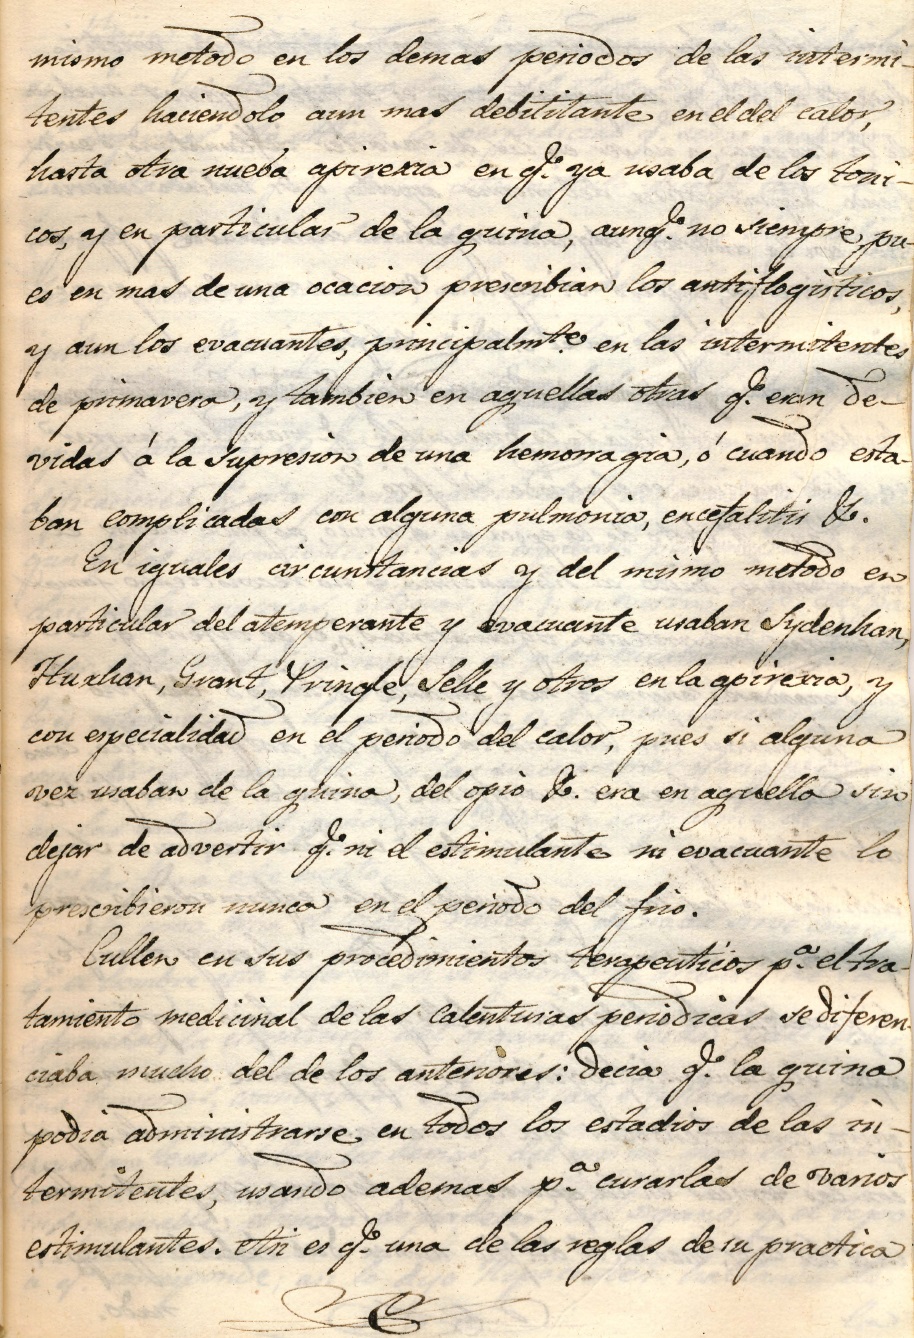 mismo metodo en los demas periodos de las intermi-
tentes haciendolo aun mas debilitante en el del calor,
hasta otra nueba apirexia en q.e ya usaba de los toni-
cos, y en particular de la quina, aunq.e no siempre, pu-
es en mas de una ocacion prescribian los antiflogisticos,
y aun los evacuantes, principalm.te en las intermitentes
de primavera, y tambien en aquellas otras q.e eran de-
vidas á la supresion de una hemorragia, ó cuando esta-
ban complicadas con alguna pulmonia, encefalitis &.
En iguales circunstancias y del mismo metodo en
particular del atemperante y evacuante usaban Sydenhan,
Huxhan, Grant, Pringle, Selle y otros en la apirexia, y
con especialidad en el periodo del calor, pues si alguna
vez usaban de la quina, del opio &. era en aquella sin
dejar de advertir q.e ni el estimulante ni evacuante lo
prescribieron nunca en el periodo del frio.
Cullen en sus procedimientos terapeuticos p.a el tra-
tamiento medicinal de las calenturas periodicas se diferen-
ciaba mucho del de los anteriores: decia q.e la quina
podia administrarse en todos los estadios de las in-
termitentes, usando ademas p.a curarlas de varios
estimulantes. Asi es q.e una de las reglas de su practica